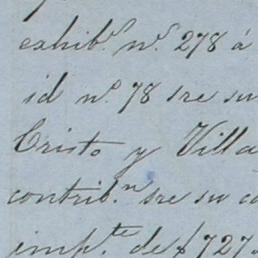 exhib.º n.º 278 á
id n.º 78 sre su
Cristo y Villa
contrib.n sre su c
imp.te de $ 727.